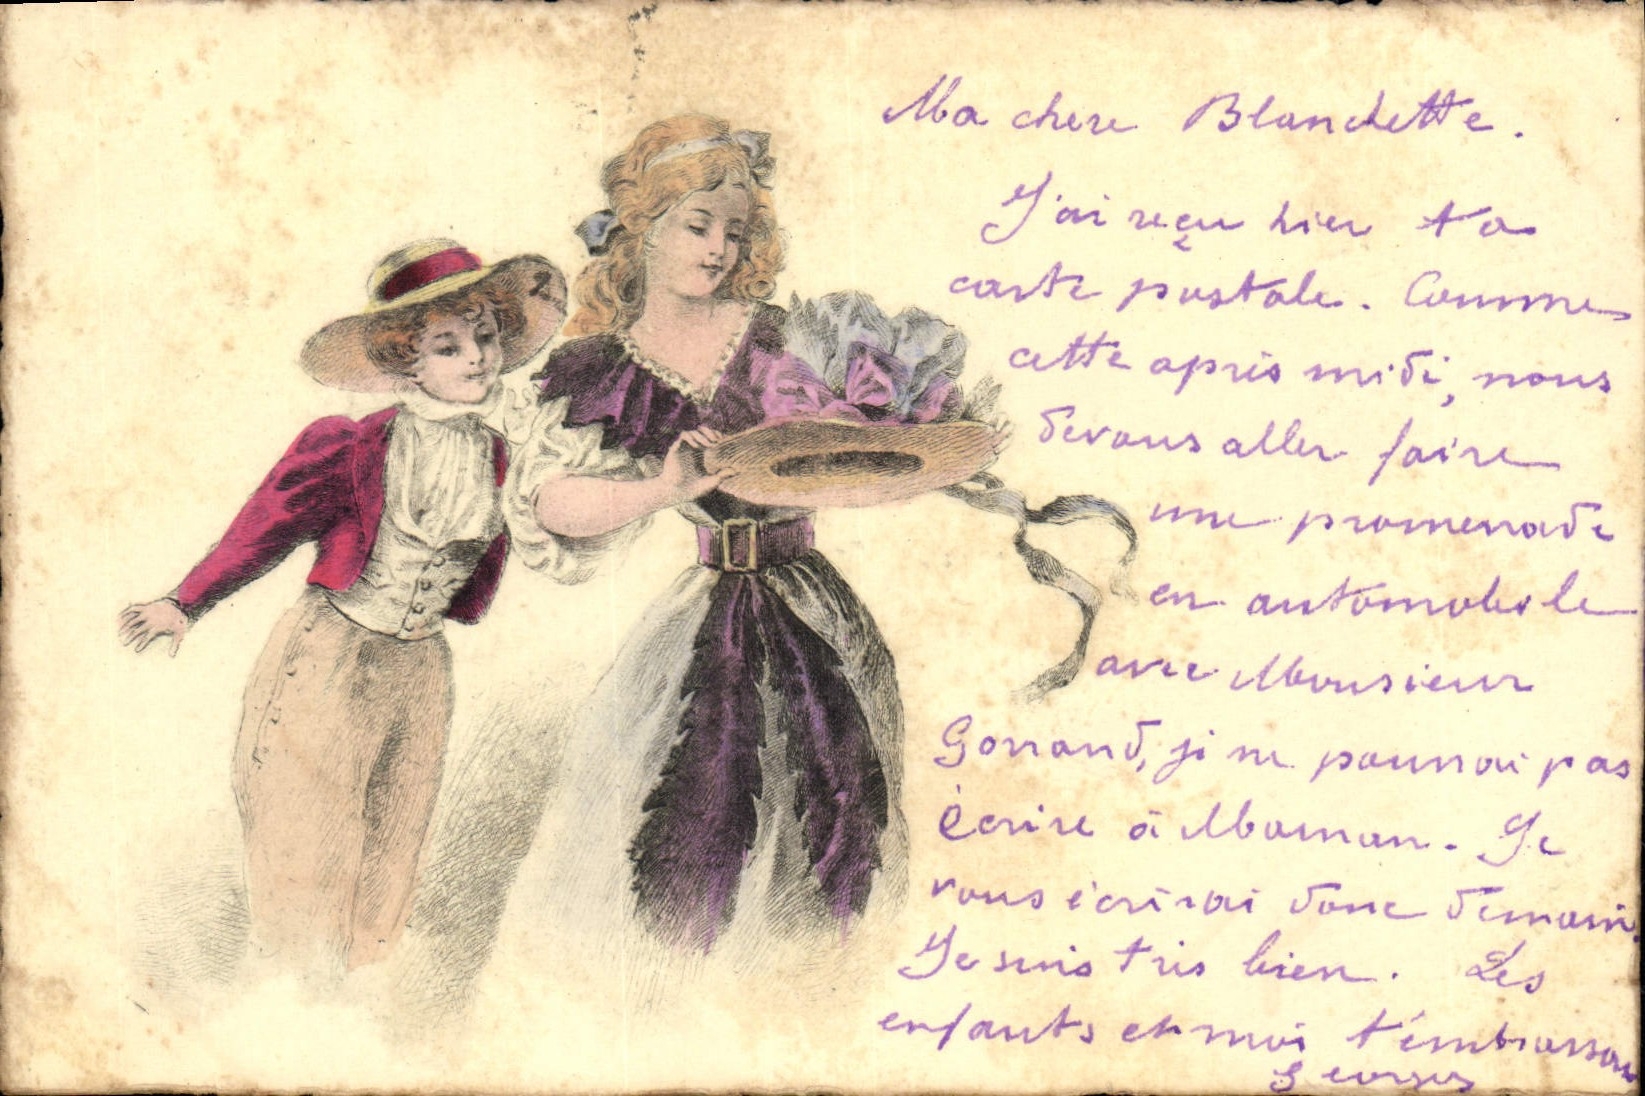 Ma chere Blanchette.
J'ai reçu hier ta
carte postale. Comme
cette après midi, nous
devons aller faire
une promenade
en automobile
avec Monsieur
Gonrand, je ne pourrai pas
écrire à Maman. Je
vous écrirai donc demain.
Je suis très bien. Les
enfants et moi t'embrassons
Georges